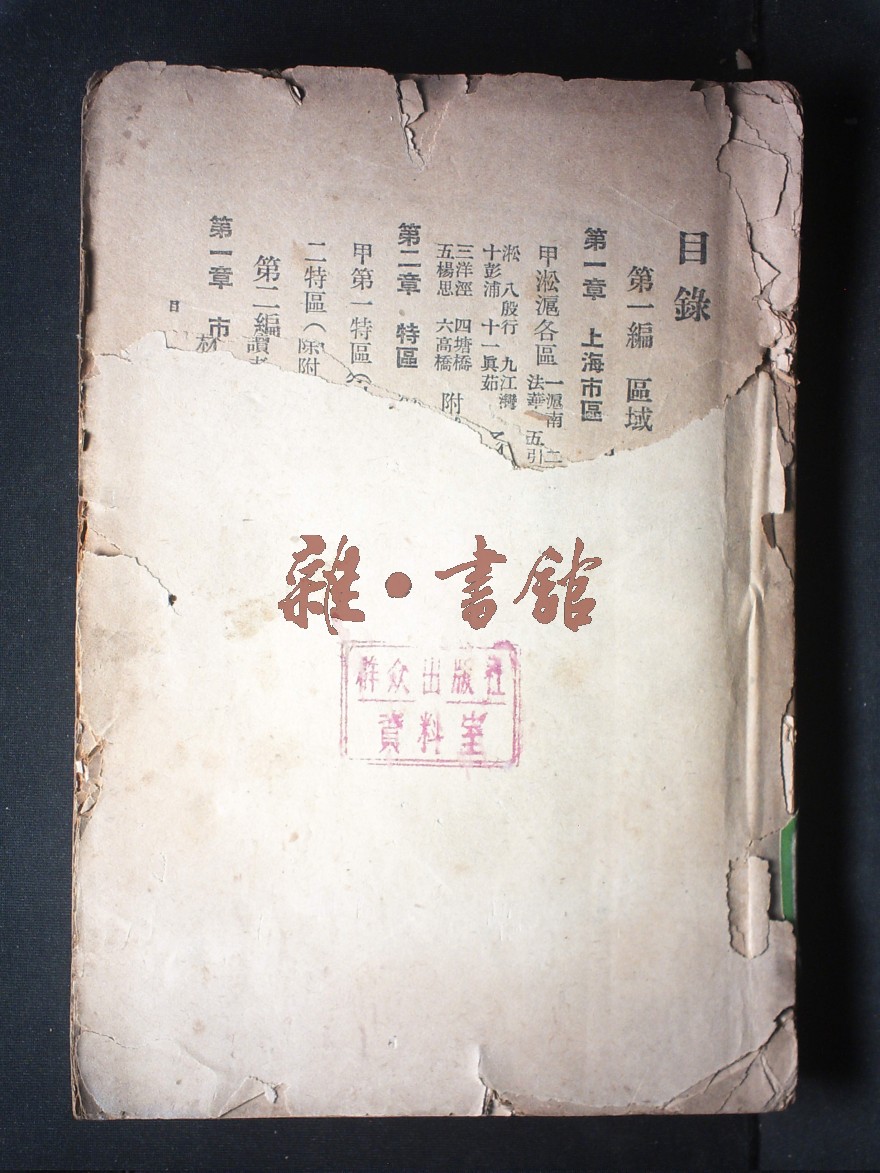 目錄
第一編 區域
第一章 上海市區
甲淞滬各區 一滬南 二
法華 五引
淞 八殷行 九江灣
十彭浦 十一眞茹
三洋涇 四塘橋
五楊思 六高橋 附
第二章 特區
甲第一特區
二特區(除附
第二編
第一章 市
雜·書館
群众出版社
資料室